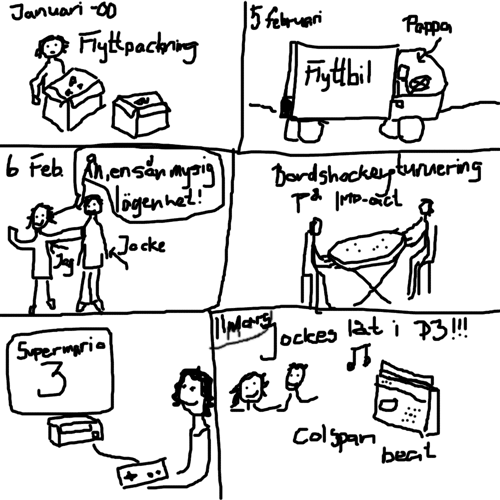 Januari -00
Flyttpackning
5 Februari
Pappa
Flyttbil
6 Feb.
Åh, en sån mysig
lägenhet!
Jag
Jocke
Bordshockeyturnering
på IMD-äct
Supermario
3
11 Mars
Jockes låt i P3!!!
Colspan
beat